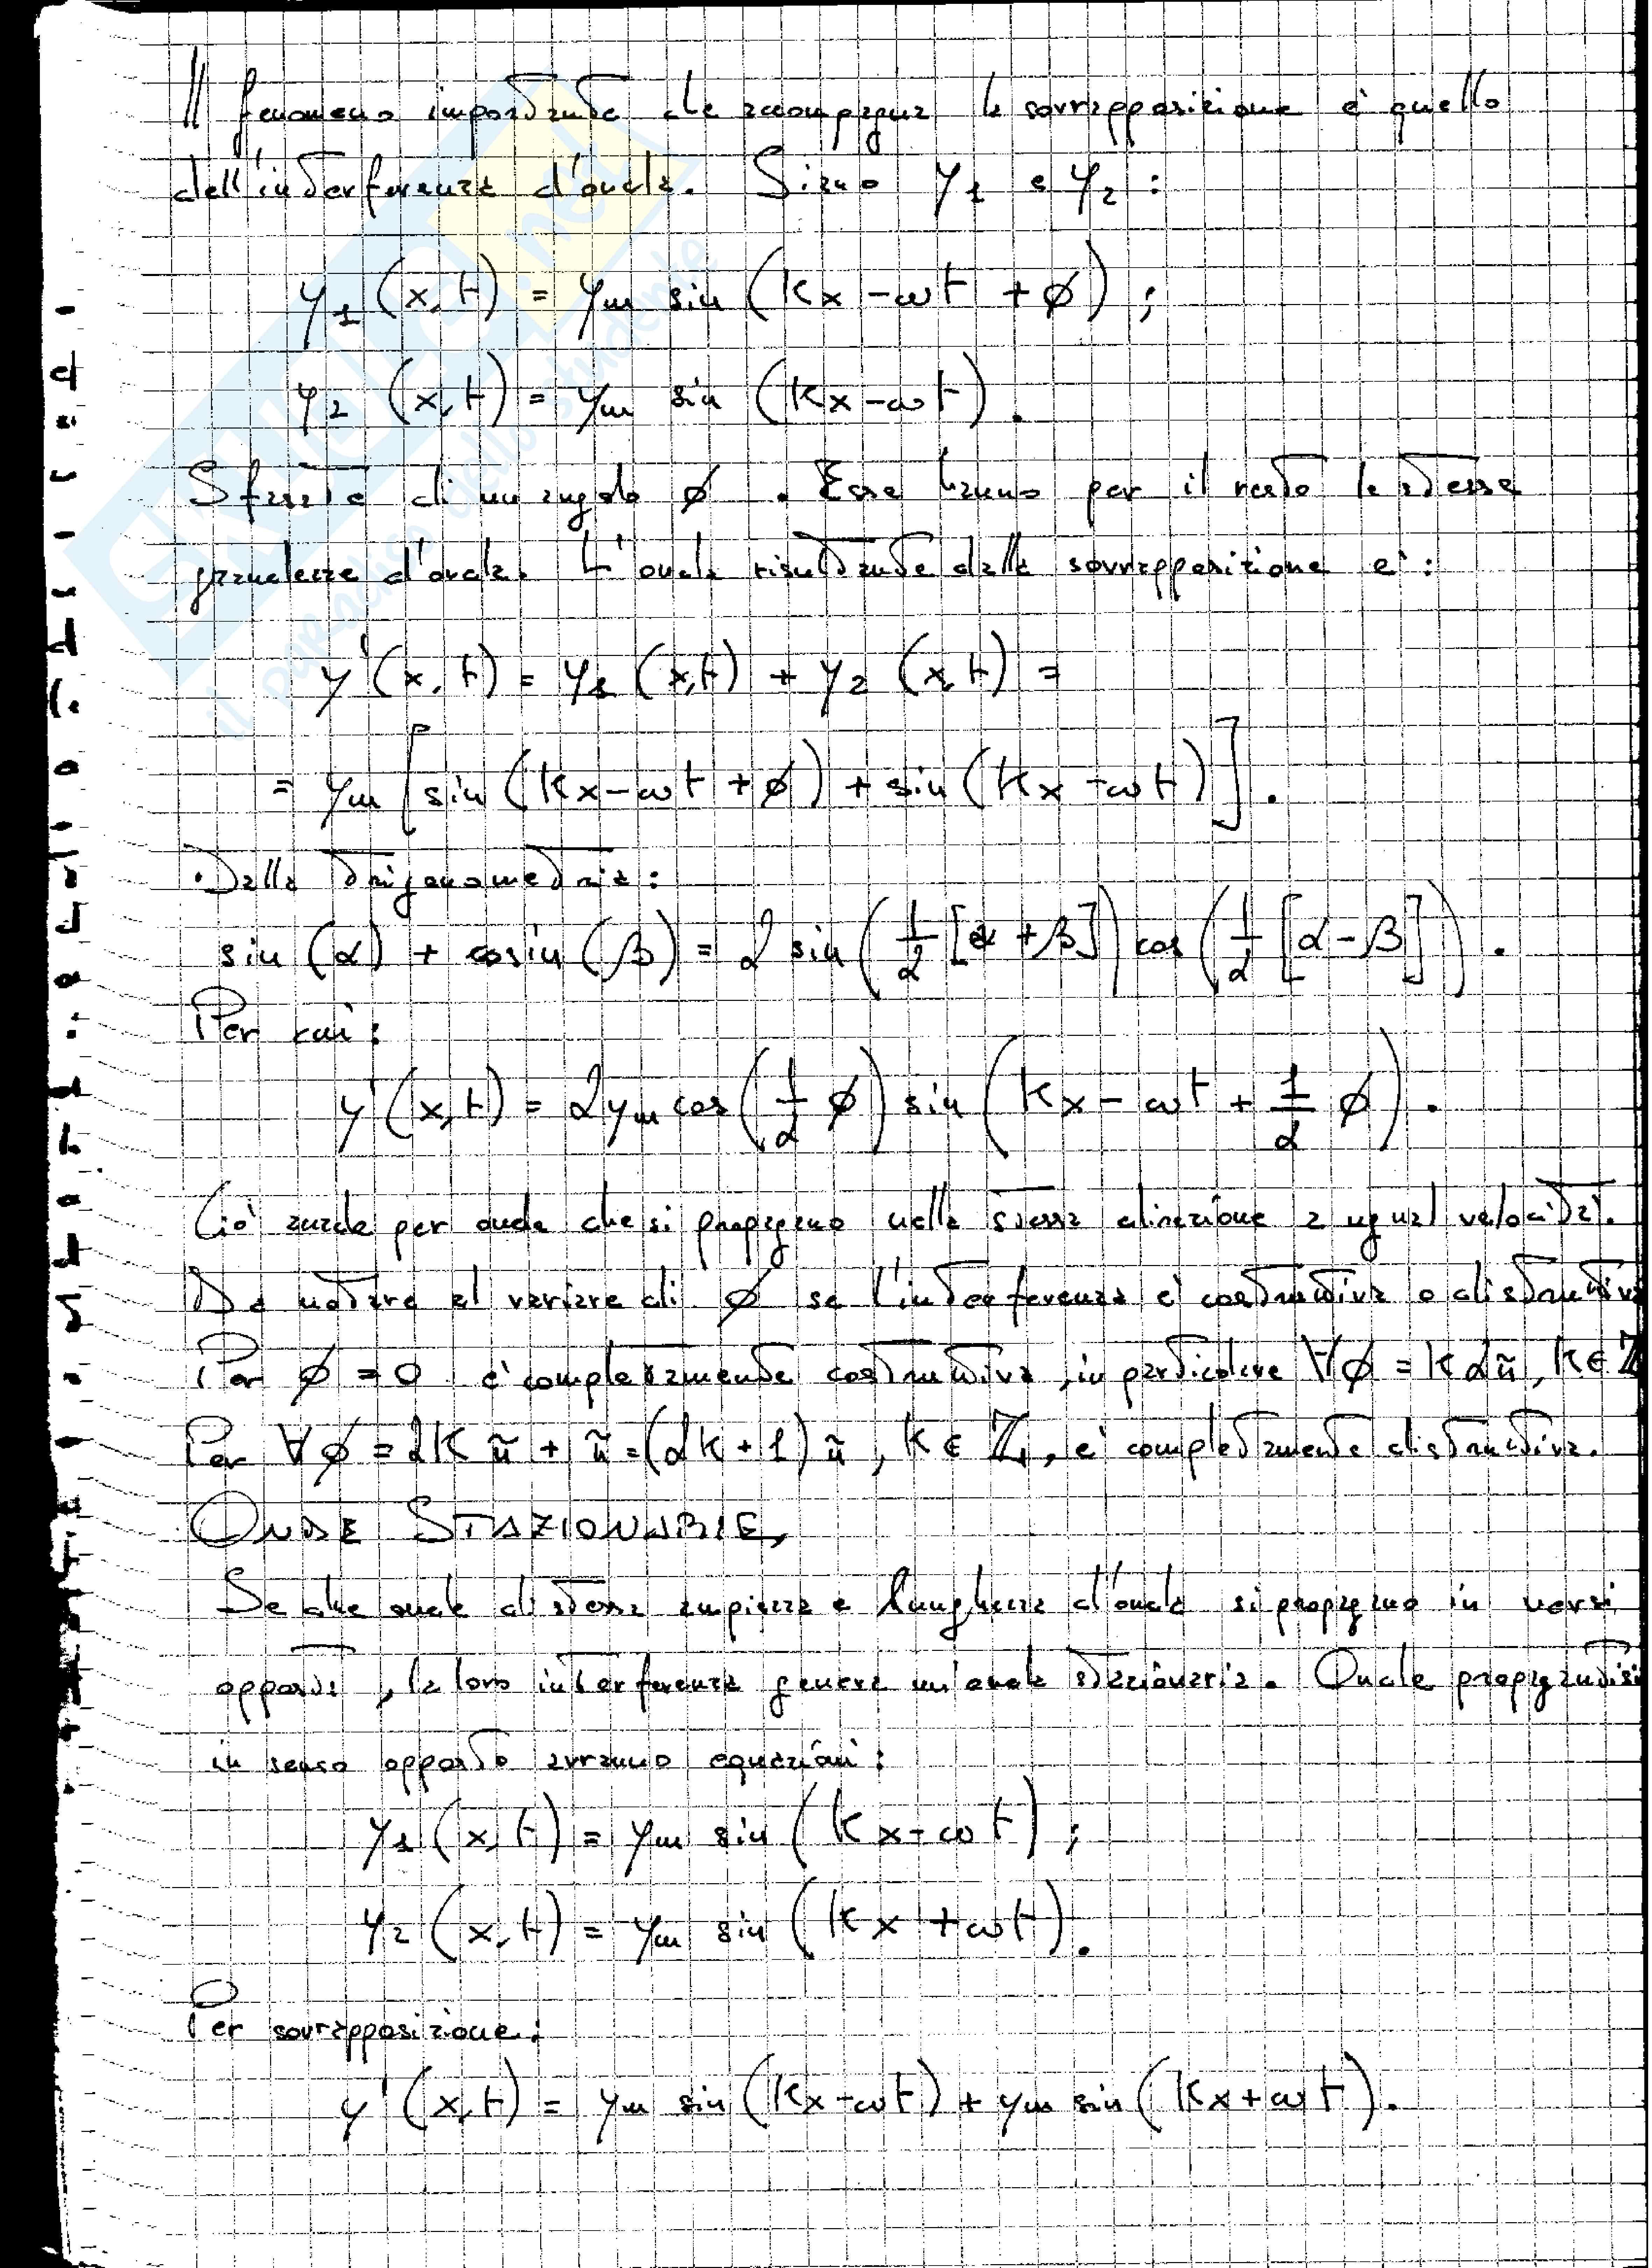 Il fenomeno importante che accompagna la sovrapposizione è quello
dell'interferenza d'onda. Siano y₁ e y₂:
y₁(x,t) = yₘ sin (kx - ωt + φ);
y₂(x,t) = yₘ sin (kx - ωt).
Sfasate di un angolo φ. Esse hanno per il resto le stesse
grandezze d'onda. L'onda risultante dalla sovrapposizione è:
y'(x,t) = y₁(x,t) + y₂(x,t) =
= yₘ [sin (kx - ωt + φ) + sin (kx - ωt)].
Dalla trigonometria:
sin (α) + cosin (β) = 2 sin (1/2 [α + β]) cos (1/2 [α - β]).
Per cui:
y'(x,t) = 2yₘ cos (1/2 φ) sin (kx - ωt + 1/2 φ).
Ciò accade per onde che si propagano nella stessa direzione a ugual velocità.
Da notare al variare di φ se l'interferenza è costruttiva o distruttiva
Per φ = 0 è completamente costruttiva, in particolare ∀φ = k2π, k ∈ ℤ
Per ∀φ = 2kπ + π = (2k + 1)π, k ∈ ℤ, è completamente distruttiva.
ONDE STAZIONARIE,
Se due onde di stessa ampiezza e lunghezza d'onda si propagano in versi
opposti, la loro interferenza genera un'onda stazionaria. Onde propagantisi
in senso opposto avranno equazioni:
y₁(x,t) = yₘ sin (kx - ωt);
y₂(x,t) = yₘ sin (kx + ωt).
Per sovrapposizione:
y'(x,t) = yₘ sin (kx - ωt) + yₘ sin (kx + ωt).
SKUOLA.net
il paradiso dello studente